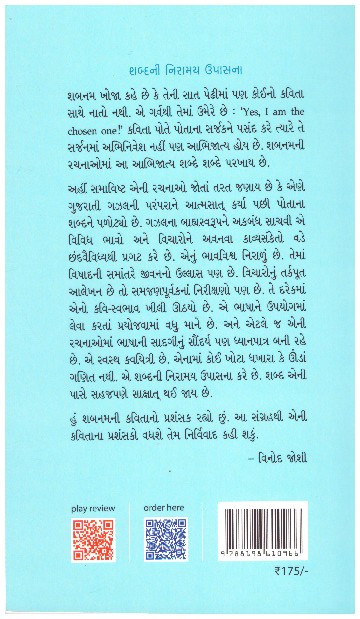 શબ્દની નિરામય ઉપાસના
શબનમ ખોજા કહે છે કે તેની સાત પેઢીમાં પણ કોઈનો કવિતા
સાથે નાતો નથી. એ ગર્વથી તેમાં ઉમેરે છે : 'Yes, I am the
chosen one!' કવિતા પોતે પોતાના સર્જકને પસંદ કરે ત્યારે તે
સર્જનમાં અભિનિવેશ નહીં પણ આભિજાત્ય હોય છે. શબનમની
રચનાઓમાં આ આભિજાત્ય શબ્દે શબ્દે પરખાય છે.
અહીં સમાવિષ્ટ એની રચનાઓ જોતાં તરત જણાય છે કે એણે
ગુજરાતી ગઝલની પરંપરાને આત્મસાત્ કર્યા પછી પોતાના
શબ્દને પળોટ્યો છે. ગઝલના બાહ્યસ્વરૂપને અકબંધ સાચવી એ
વિવિધ ભાવો અને વિચારોને અવનવા કાવ્યસંકેતો વડે
છંદવૈવિધ્યથી પ્રગટ કરે છે. એનું ભાવવિશ્વ નિરાળું છે. તેમાં
વિષાદની સમાંતરે જીવનનો ઉલ્લાસ પણ છે. વિચારોનું તર્કપૂત
આલેખન છે તો સમજણપૂર્વકનાં નિરીક્ષણો પણ છે. તે દરેકમાં
એનો કવિ-સ્વભાવ ખીલી ઊઠ્યો છે. એ ભાષાને ઉપયોગમાં
લેવા કરતાં પ્રયોજવામાં વધુ માને છે. અને એટલે જ એની
રચનાઓમાં ભાષાની સાદગીનું સૌંદર્ય પણ ધ્યાનપાત્ર બની રહે
છે. એ સ્વસ્થ કવયિત્રી છે. એનામાં કોઈ ખોટા ધખારા કે ઊંડાં
ગણિત નથી. એ શબ્દની નિરામય ઉપાસના કરે છે. શબ્દ એની
પાસે સહજપણે સાક્ષાત્ થઈ જાય છે.
હું શબનમની કવિતાનો પ્રશંસક રહ્યો છું. આ સંગ્રહથી એની
કવિતાના પ્રશંસકો વધશે તેમ નિર્વિવાદ કહી શકું.
– વિનોદ જોશી
play review
order here
9788198610966
₹175/-